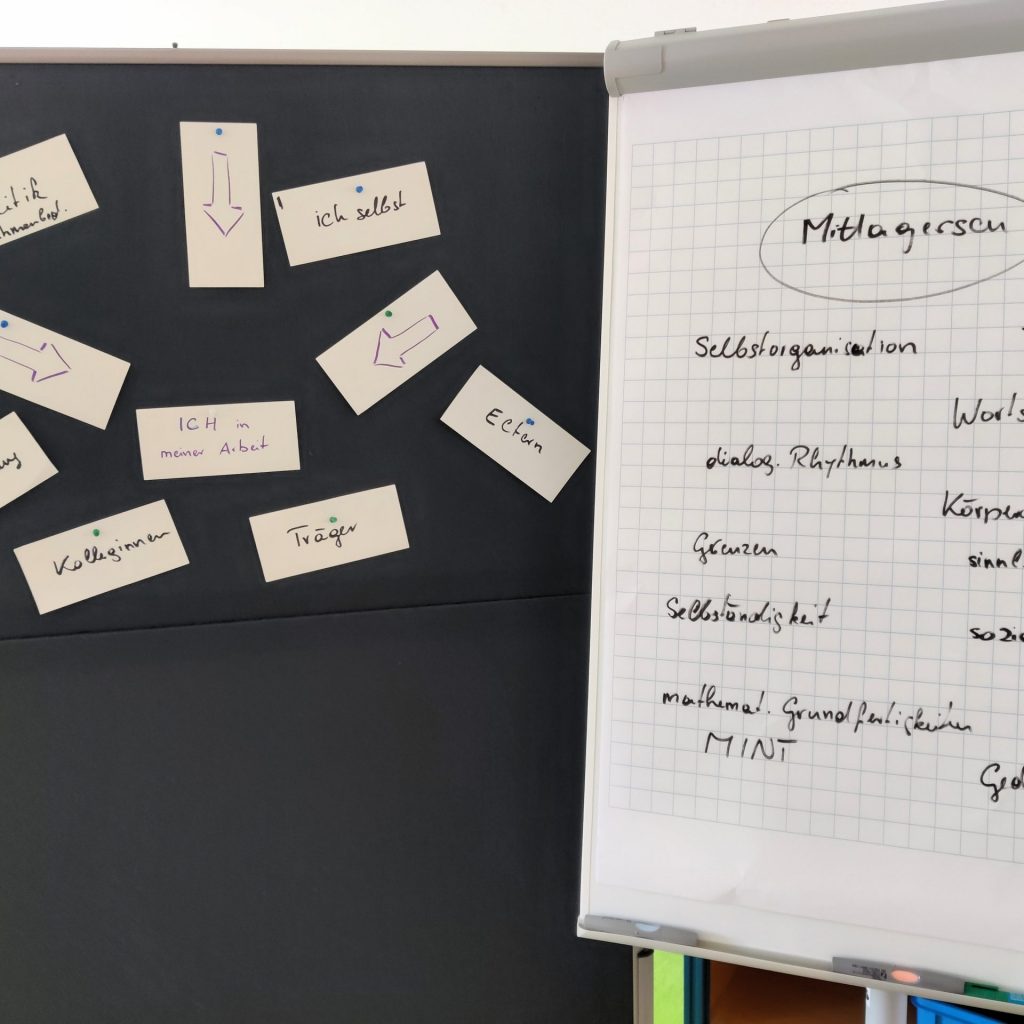 ich selbst
ICH in
meiner Arbeit
Eltern
Kolleginnen
Träger
Mittagerscu
Selbstorganisation
Worts
dialog. Rhythmus
Körper
Grenzen
sinnl
Selbständigkeit
sozi
mathemat. Grundfertigkeiten
MINT